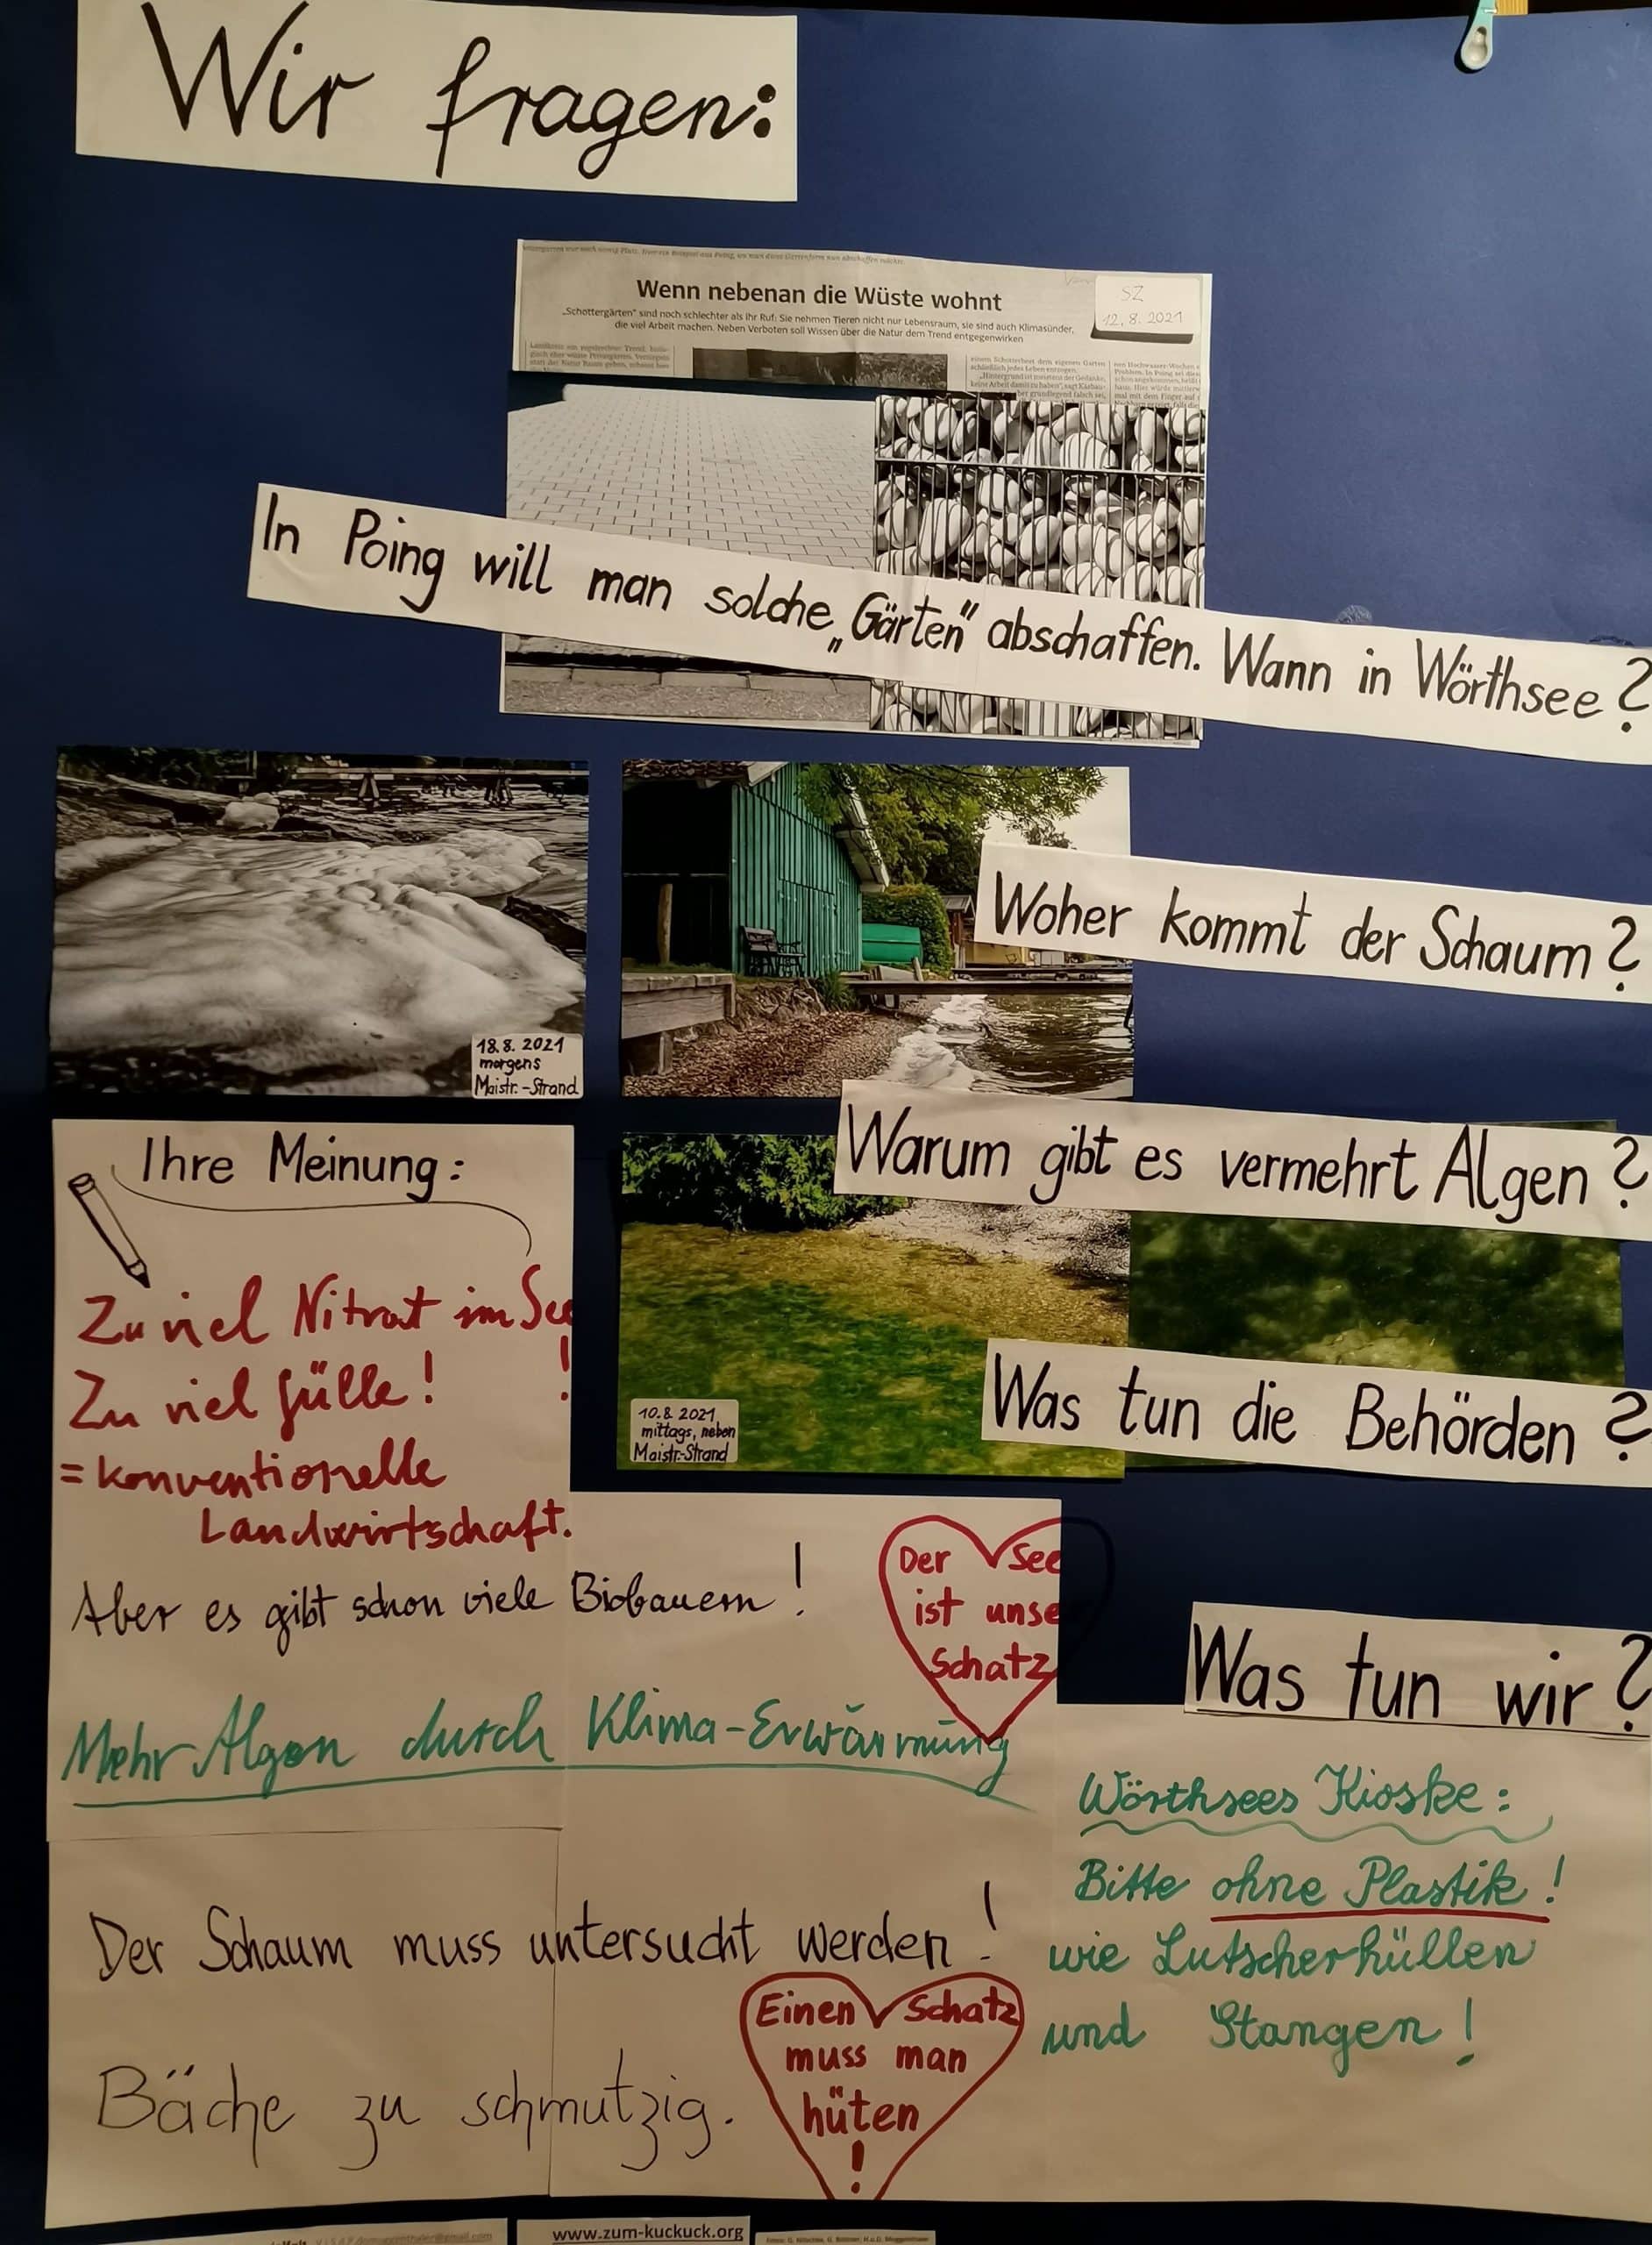 Wir fragen:
Wenn nebenan die Wüste wohnt
„Schottergärten“ sind noch schlechter als ihr Ruf: Sie nehmen Tieren nicht nur Lebensraum, sie sind auch Klimasünder,
die viel Arbeit machen. Neben Verboten soll Wissen über die Natur dem Trend entgegenwirken
SZ
12.8.2021
In Poing will man solche „Gärten“ abschaffen. Wann in Wörthsee?
Woher kommt der Schaum?
18.8.2021
morgens
Maistr.-Strand
Warum gibt es vermehrt Algen?
Was tun die Behörden?
10.8.2021
mittags, neben
Maistr-Strand
Ihre Meinung:
Zu viel Nitrat im See!
Zu viel Gülle!
= konventionelle
Landwirtschaft.
Aber es gibt schon viele Biobauern!
Der See
ist unse
Schatz
Mehr Algen durch Klima-Erwärmung
Der Schaum muss untersucht werden!
Einen Schatz
muss man
hüten
!
Bäche zu schmutzig.
Was tun wir?
Wörthsees Kioske:
Bitte ohne Plastik!
wie Lutscherhüllen
und Stangen!
www.zum-kuckuck.org